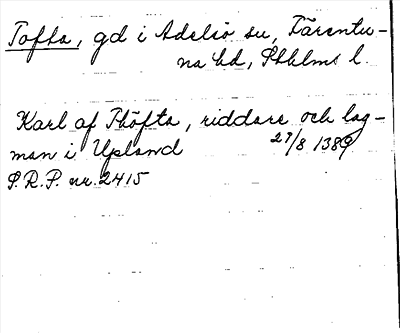 Tofta, gd i Adelsö sn, Färentu-
na hd, Sthlms l.
Karl af Thöfta, riddare och lag-
man i Upland 27/8 1389
S.R.P. nr. 2415